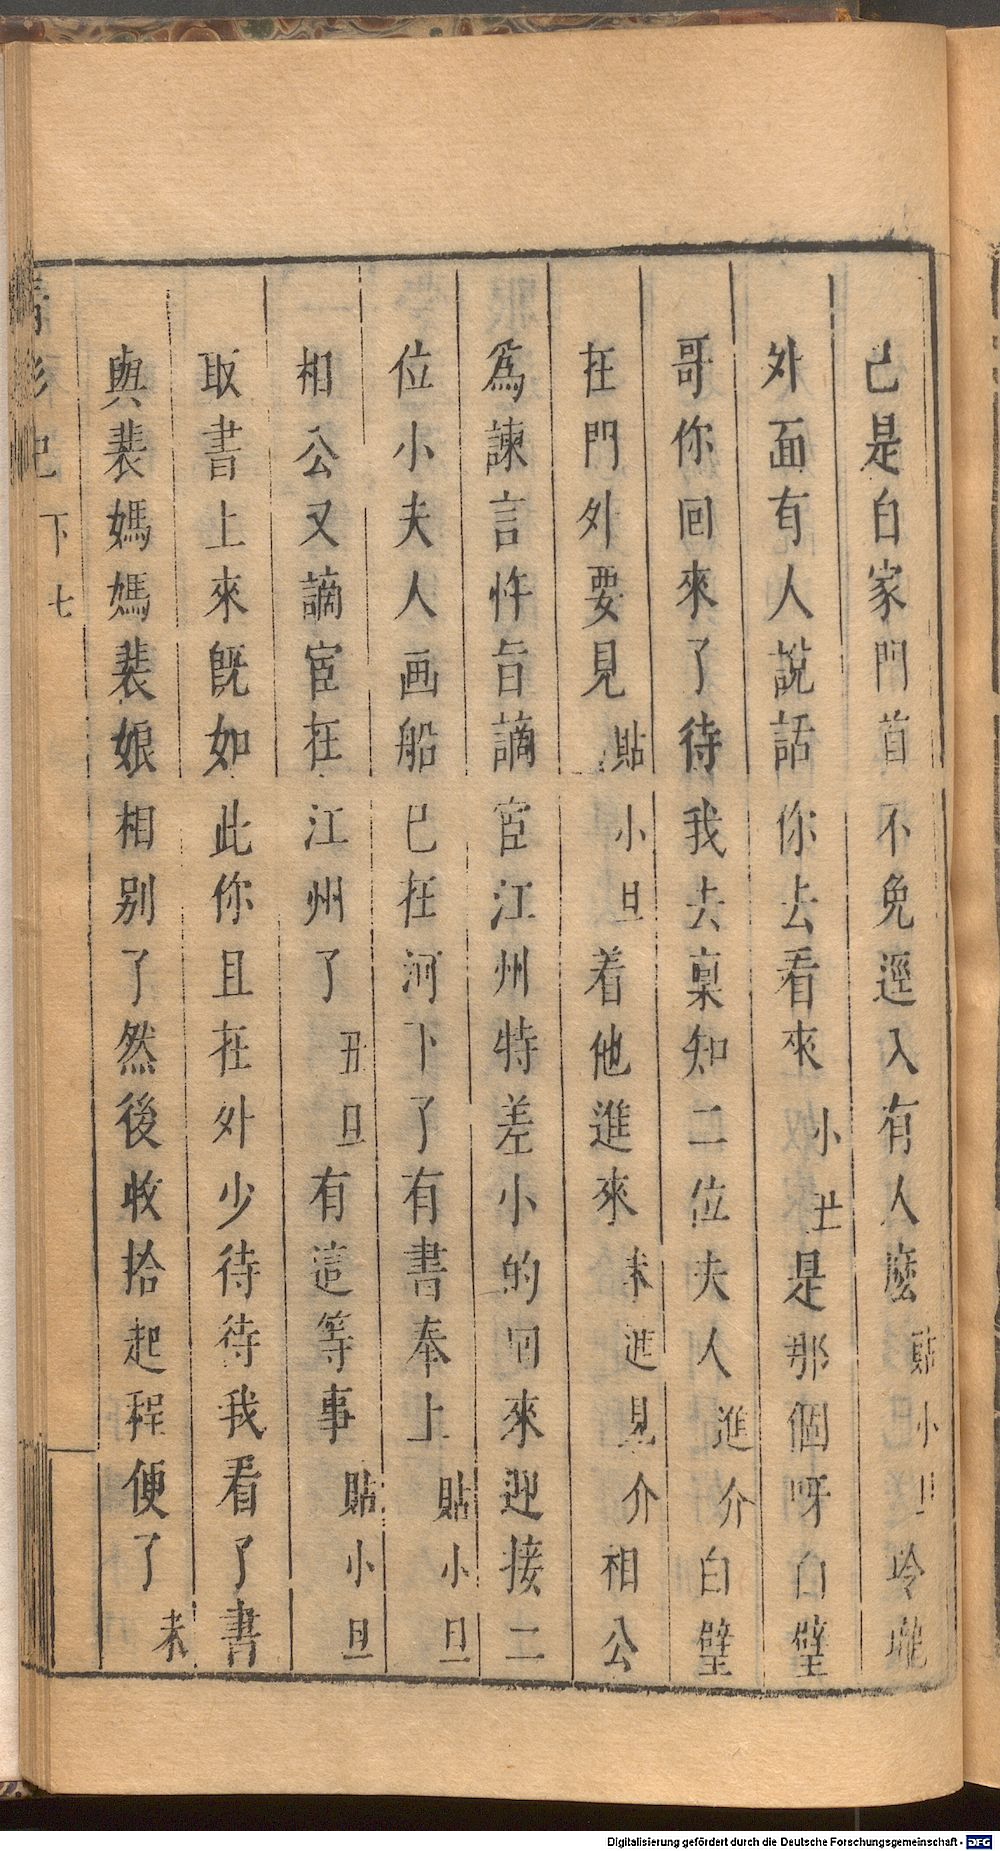 已是自家門首不免逕入有人麽貼小旦玲瓏
外面有人說話你去看來小丑是那個呀白璧
哥你回來了待我去稟知二位夫人進介白璧
在門外要見貼小旦着他進來末進見介相公
爲諫言忤旨謫宦江州特差小的回來迎接二
位小夫人画船已在河下了有書奉上貼小旦
相公又謫宦在江州了丑旦有這等事貼小旦
取書上來旣如此你且在外少待待我看了書
與裴媽媽裴娘相別了然後收拾起程便了末
記下 七
Digitalisierung gefördert durch die Deutsche Forschungsgemeinschaft - DFG